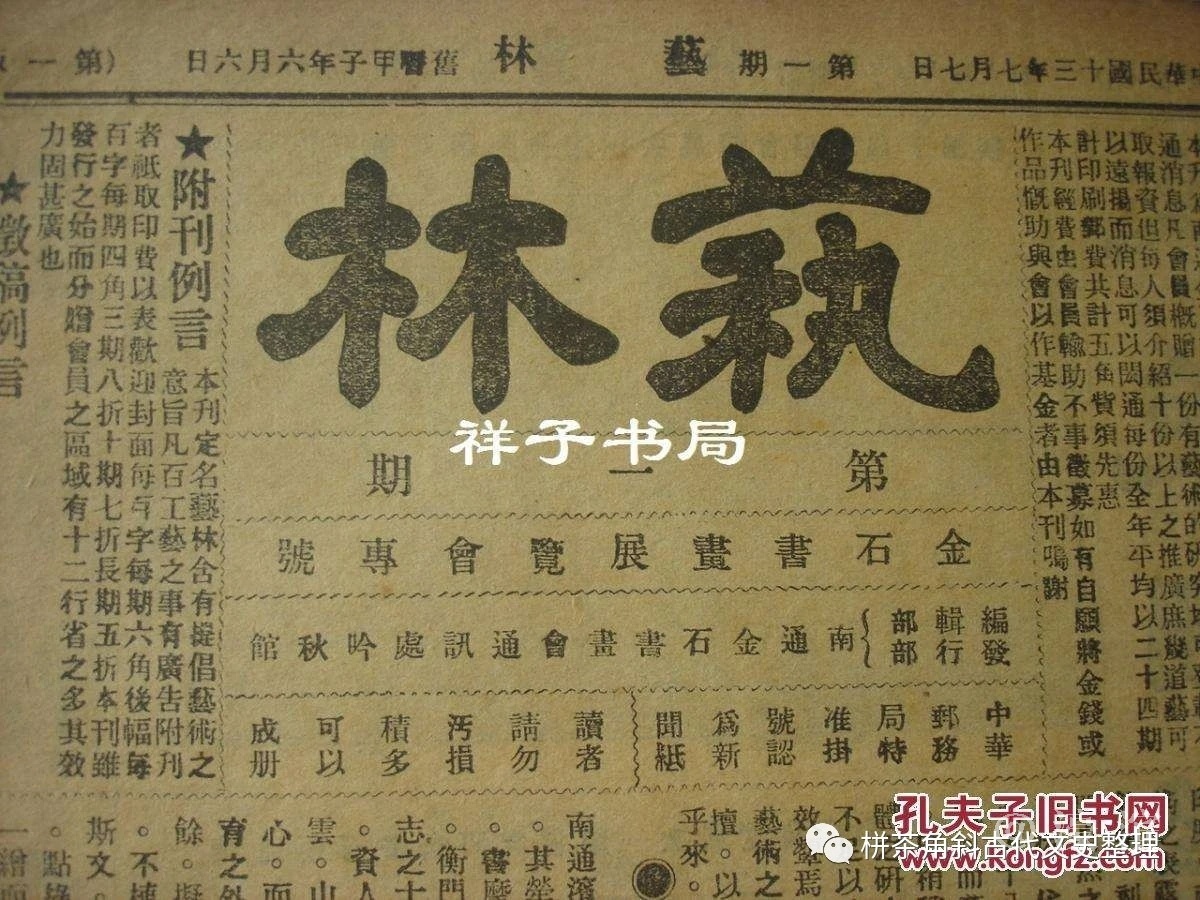 中華民國十三年七月七日 第一期 藝林 舊曆甲子年六月六日 (第一
通消息凡會員概贈一份有藝術的研究
取報資但每人須介紹十份以上之推廣庶幾道藝可
以遠揚而消息可以閎通每份全年平均以二十四期
計印刷郵費共計五角貲須先惠
本刊經費由會員輸助不事徵募如有自願將金錢或
作品慨助與會以作基金者由本刊鳴謝
藝林
第一期
金石書畫展覽會專號
編輯部
發行部
南通金石書畫會通訊處吟秋館
中華
郵務
局特
准掛
號認
為新
聞紙
讀者
請勿
汚損
積多
可以
成册
★附刊例言
本刊定名藝林含有提倡藝術之
意旨凡百工藝之事有廣告附刊
者祇取印費以表歡迎封面每百字每期六角後幅每
百字每期四角三期八折十期七折長期五折本刊雖
發行之始而分贈會員之區域有十二行省之多其效
力固甚廣也
★徵稿例言
效顰焉
藝術之
擅。以
乎來。
南通濱
。其榮
。書麼
。衡門
志之士
。資人
雲。山
心。而
育之外
餘。擬
。不揀
斯文。
。點綠
一繪
祥子书局
孔夫子旧书网
www.kongfz.com
栟茶角斜古代文史整理